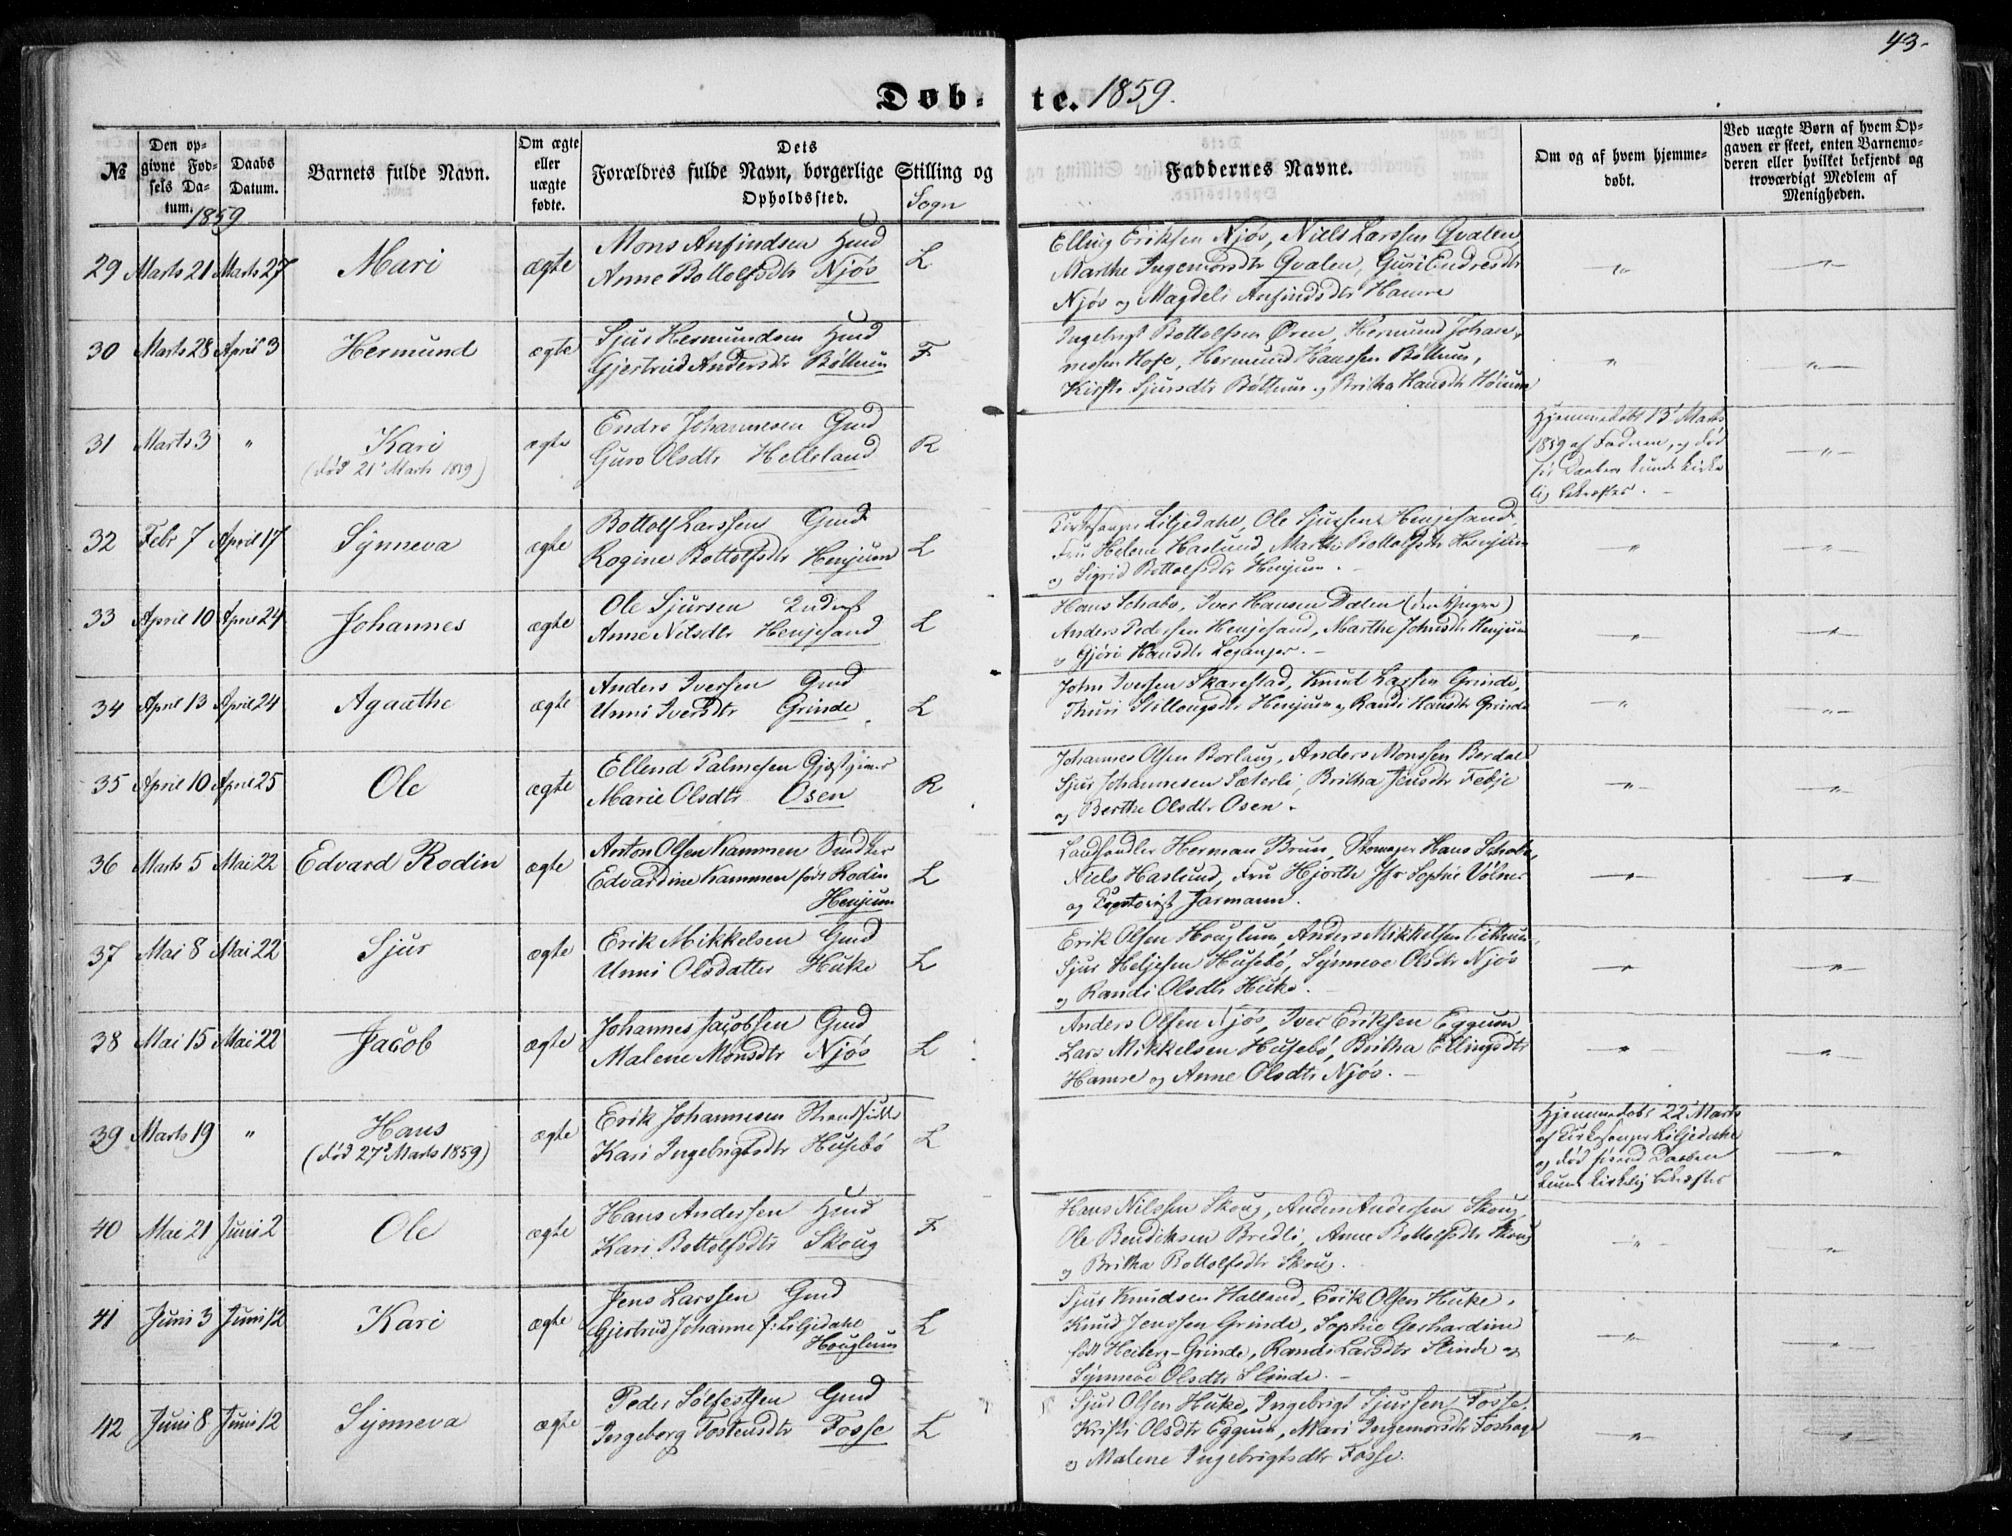 43.
Døb- te. 1859.
№
Den opgivne Fødsels Datum.
Daabs Datum.
Barnets fulde Navn.
Om ægte eller uægte fødte.
Dets Forældres fulde Navn, borgerlige Stilling og Opholdssted.
Sogn
Faddernes Navne.
Om og af hvem hjemmedøbt.
Ved uægte Børn af hvem Opgaven er skeet, enten Barnemoderen eller hvilket bekjendt og troværdigt Medlem af Menigheden.
1859
29 Marts 21 Marts 27 Mari ægte Mons Anfindsen Hmd L
Anne Bottolfsdtr Njøs
Elling Eriksen Njøs, Niels Larssen Qvalen,
Marthe Ingemorsdtr Qvalen, Guri Endresdtr
Njøs og Magdeli Anfindsdtr Hamre
30 Marts 28 April 3 Hermund ægte Sjur Hermundsen Hmd F
Gjertrud Andersdtr Bøttum
Ingebrigt Bottolfsen Øren, Hermund Johan-
nessen Hofe, Hermund Hanssen Bøttum,
Kirsti Sjursdtr Bøttum og Britha Hansdtr Høium
31 Marts 3 " Kari ægte Endre Johannesen Gmd R
(død 21 Marts 1859) Guro Olsdtr Helleland
Hjemmedøbt 13 Marts
1859 af Faderen, og død
før Daaben kunde kirke
lig bekræftes.
32 Febr 7 April 17 Synneva ægte Bottolf Larssen Gmd L
Rogine Bottolfsdtr Henjum
Kirkesanger Liljedahl, Ole Sjursen Henjesand,
Fru Helene Haslund, Marthe Bottolfsdtr Henjum
og Sigrid Bottolfsdtr Henjum.
33 April 10 April 24 Johannes ægte Ole Sjursen L
Anne Nilsdtr Henjesand
Hans Schabo, Iver Hansen Dalen (den Yngre)
Anders Pedersen Henjesand, Marthe Johnsdtr Henjum
og Gjøri Hansdtr Leganger.
34 April 13 April 24 Agaathe ægte Anders Iversen Gmd L
Unni Iversdtr Grinde
John Iversen Skarestad, Knud Larsen Grinde,
Thuri Stillougsdtr Henjum og Randi Hansdtr Grinde
35 April 10 April 25 Ole ægte Ellend Palmesen Gjæstgiver R
Marie Olsdtr Osen
Johannes Olsen Borlaug, Anders Monssen Berdal
Sjur Johannesen Sæterli, Britha Jensdtr Febje
og Berthe Olsdtr Osen.
36 Marts 5 Mai 22 Edvard Rodin ægte Anton Olsen Kammen L
Edvardine Kammen født Rodin
Henjum
Landhandler Herman Brun, Skomager Hans Schabo,
Niels Haslund, Fru Hjorthe Jfr Sophie Vølner
og Jarmann.
37 Mai 8 Mai 22 Sjur ægte Erik Mikkelsen Gmd L
Unni Olsdatter Huke
Erik Olsen Houglum, Anders Mikkelsen
Sjur Heljesen Husebø, Synneve Olsdtr Njøs
og Randi Olsdtr Huke.
38 Mai 15 Mai 22 Jacob ægte Johannes Jacobsen Gmd L
Malene Monsdtr Njøs
Anders Olsen Njøs, Iver Eriksen Eggum,
Lars Mikkelsen Husebø, Britha Ellingsdtr
Hamre og Anne Olsdtr Njøs.
39 Marts 19 " Hans ægte Erik Johannesen Strandsidder L
(død 27de Marts 1859) Kari Ingebrigtsdtr Husebø
Hjemmedøbt 22 Marts
af Kirkesanger Liljedahl
og død førend Daaben
kunde kirkelig bekræftes
40 Mai 21 Juni 2 Ole ægte Hans Andersen Hmd F
Kari Bottolfsdtr Skoug
Hans Nilssen Skoug, Anders Andersen Skoug,
Ole Bendiksen Bredli, Anne Bottolfsdtr Skoug
og Britha Bottolfsdtr Skoug.
41 Juni 3 Juni 12 Kari ægte Jens Larssen Gmd L
Gjertrud Johanne f: Liljedahl
Houglum
Sjur Knudsen Halland, Erik Olsen Huke,
Knud Jenssen Grinde, Sophie Gerhardine
født Heiberg-Grinde, Randi Larsdtr Slinde og
Synneve Olsdtr Slinde.
42 Juni 8 Juni 12 Synneva ægte Peder Sølfestsen Gmd L
Ingeborg Tostensdtr Fosse
Sjur Olsen Huke, Ingebrigt Sjursen Fosse,
Kristi Olsdtr Eggum, Mari Ingemorsdtr Foshage
og Malene Ingebrigtsdtr Fosse.